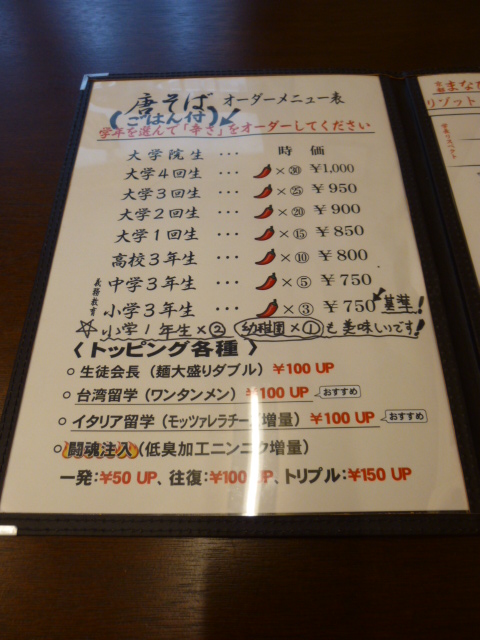 唐そば オーダーメニュー表
(ごはん付)
学年を選んで「辛さ」をオーダーしてください
大学院生 ・・・ 時価
大学4回生 ・・・ ×㉚ ¥1,000
大学3回生 ・・・ ×㉕ ¥950
大学2回生 ・・・ ×⑳ ¥900
大学1回生 ・・・ ×⑮ ¥850
高校3年生 ・・・ ×⑩ ¥800
義務教育
中学3年生 ・・・ ×⑤ ¥750
小学3年生 ・・・ ×③ ¥750 基準!
☆小学1年生×② 幼稚園×①も美味しいです!
〈トッピング各種〉
○生徒会長(麺大盛りダブル) ¥100 UP
○台湾留学(ワンタンメン) ¥100 UP おすすめ
○イタリア留学(モッツァレラチーズ増量) ¥100 UP おすすめ
○闘魂注入(低臭加工ニンニク増量)
一発:¥50 UP、往復:¥100 UP、トリプル:¥150 UP
まなび
リゾット